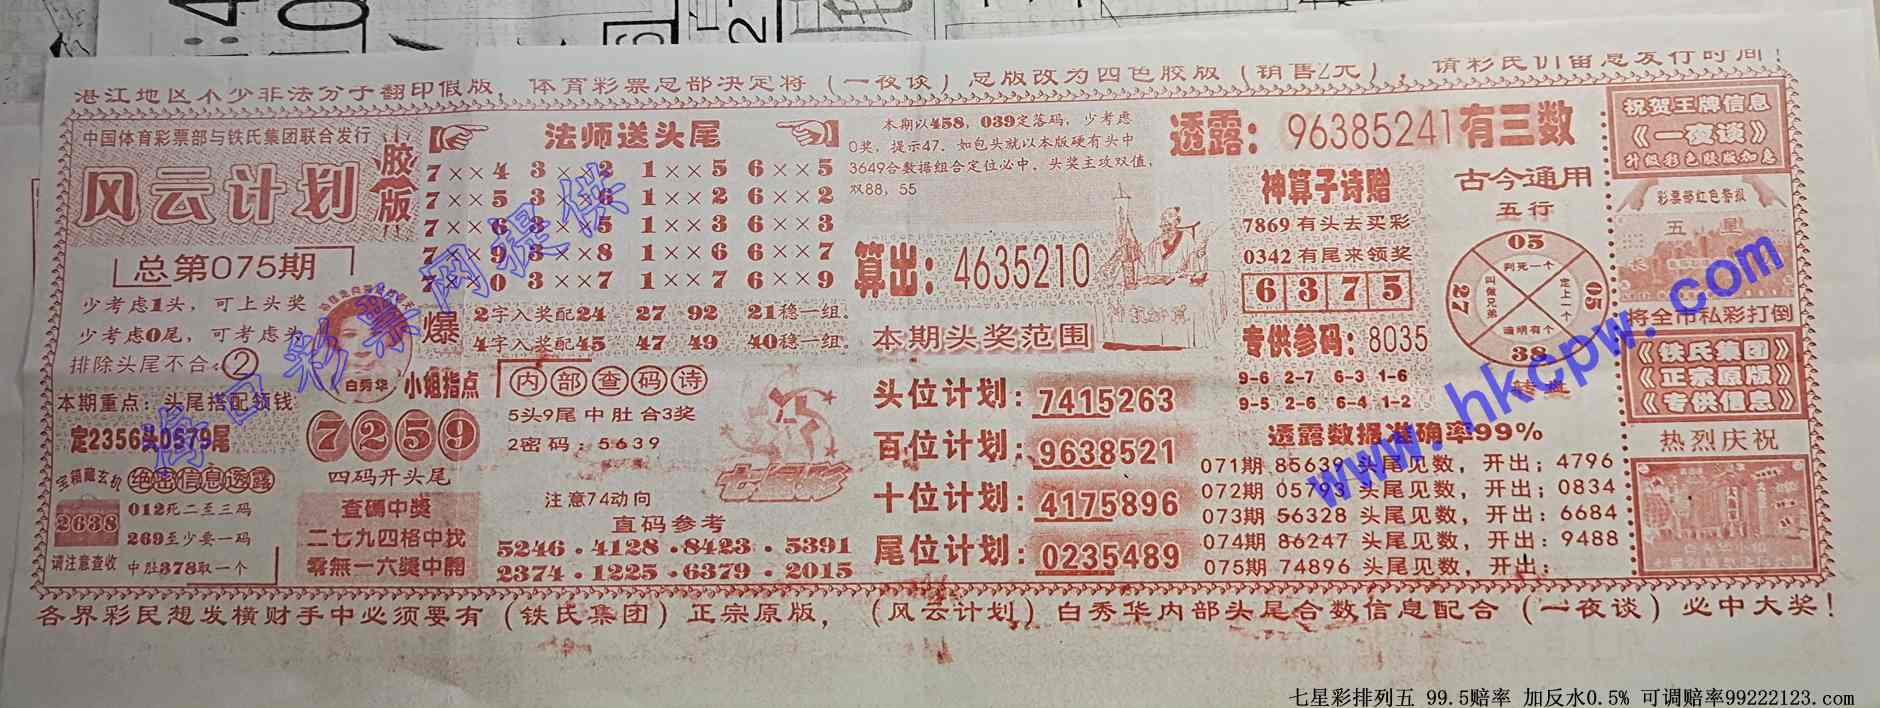 湛江地区不少非法分子翻印假版，体育彩票总部决定将（一夜谈）总版改为四色胶版（销售2元），请彩民们留意发行时间！
中国体育彩票部与铁氏集团联合发行
风云计划
胶版
总第075期
少考虑1头，可上头奖
少考虑0尾，可考虑头
排除头尾不合：②
本期重点：头尾搭配领钱
定2356头0579尾
宝箱藏玄机
绝密信息透露
2638
请注意查收
012死二至三码
269至少要一码
中肚378取一个
白秀华
小姐指点
7259
四码开头尾
查碼中獎
二七九四格中找
零無一六獎中開
法师送头尾
7××4 3××2 1××5 6××5
7××5 3××6 1××2 6××2
7××6 3××5 1××3 6××3
7××9 3××8 1××6 6××7
7××0 3××7 1××7 6××9
爆
2字入奖配24 27 92 21稳一组.
4字入奖配45 47 49 40稳一组.
内部查码诗
5头9尾中肚合3奖
2密码：5639
注意74动向
七星彩
直码参考
5246·4128·8423·5391
2374·1225·6379·2015
本期以458，039定落码，少考虑
0奖，提示47.如包头就以本版硬有头中
3649合数据组合定位必中，头奖主攻双值，
双88，55
算出：4635210
神机妙算
本期头奖范围
头位计划：7415263
百位计划：9638521
十位计划：4175896
尾位计划：0235489
透露：96385241有三数
神算子诗赠
7869有头去买彩
0342有尾来领奖
6375
专供参码：8035
9-6 2-7 6-3 1-6
9-5 2-6 6-4 1-2
古今通用
五行
05
判死一个
27
叫做兄弟
定上一个
05
道明有个
38
转盘
透露数据准确率99%
071期 85639 头尾见数，开出；4796
072期 05793 头尾见数，开出；0834
073期 56328 头尾见数，开出：6684
074期 86247 头尾见数，开出：9488
075期 74896 头尾见数，开出：
祝贺王牌信息
《一夜谈》
升级彩色胶版加急
彩票部红色警报
五星
将全市私彩打倒
《铁氏集团》
《正宗原版》
《专供信息》
热烈庆祝
各界彩民想发横财手中必须要有（铁氏集团）正宗原版，（风云计划）白秀华内部头尾合数信息配合（一夜谈）必中大奖！
海口彩票网提供
www.hkcpw.com
七星彩排列五 99.5赔率 加反水0.5% 可调赔率99222123.com